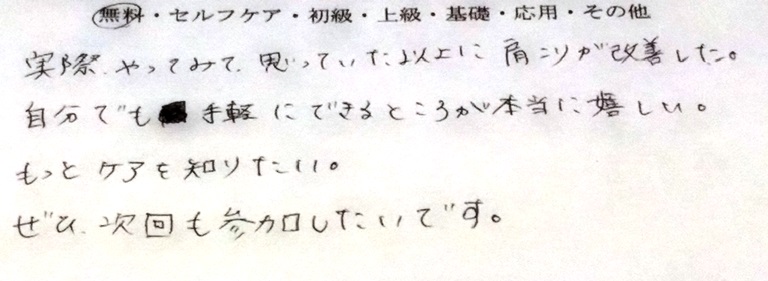 無料・セルフケア・初級・上級・基礎・応用・その他
実際、やってみて、思っていた以上に肩こりが改善した。
自分でも手軽にできるところが本当に嬉しい。
もっとケアを知りたい。
ぜひ、次回も参加したいです。